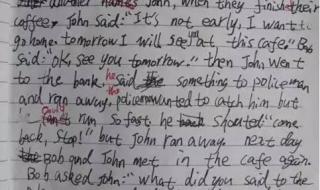 another names John, when they finish their
coffee, John said: "It's not early, I want to
go home. tomorrow I will see you at this cafe." Bob
said: "OK, see you tomorrow." then John went
to the bank he said something to policeman
and ran away, the policeman wanted to catch him but
can't run so fast he shouted "come
back, stop!" but John ran away. next day
Bob and John met in the cafe again.
Bob asked John: "what did you said to the